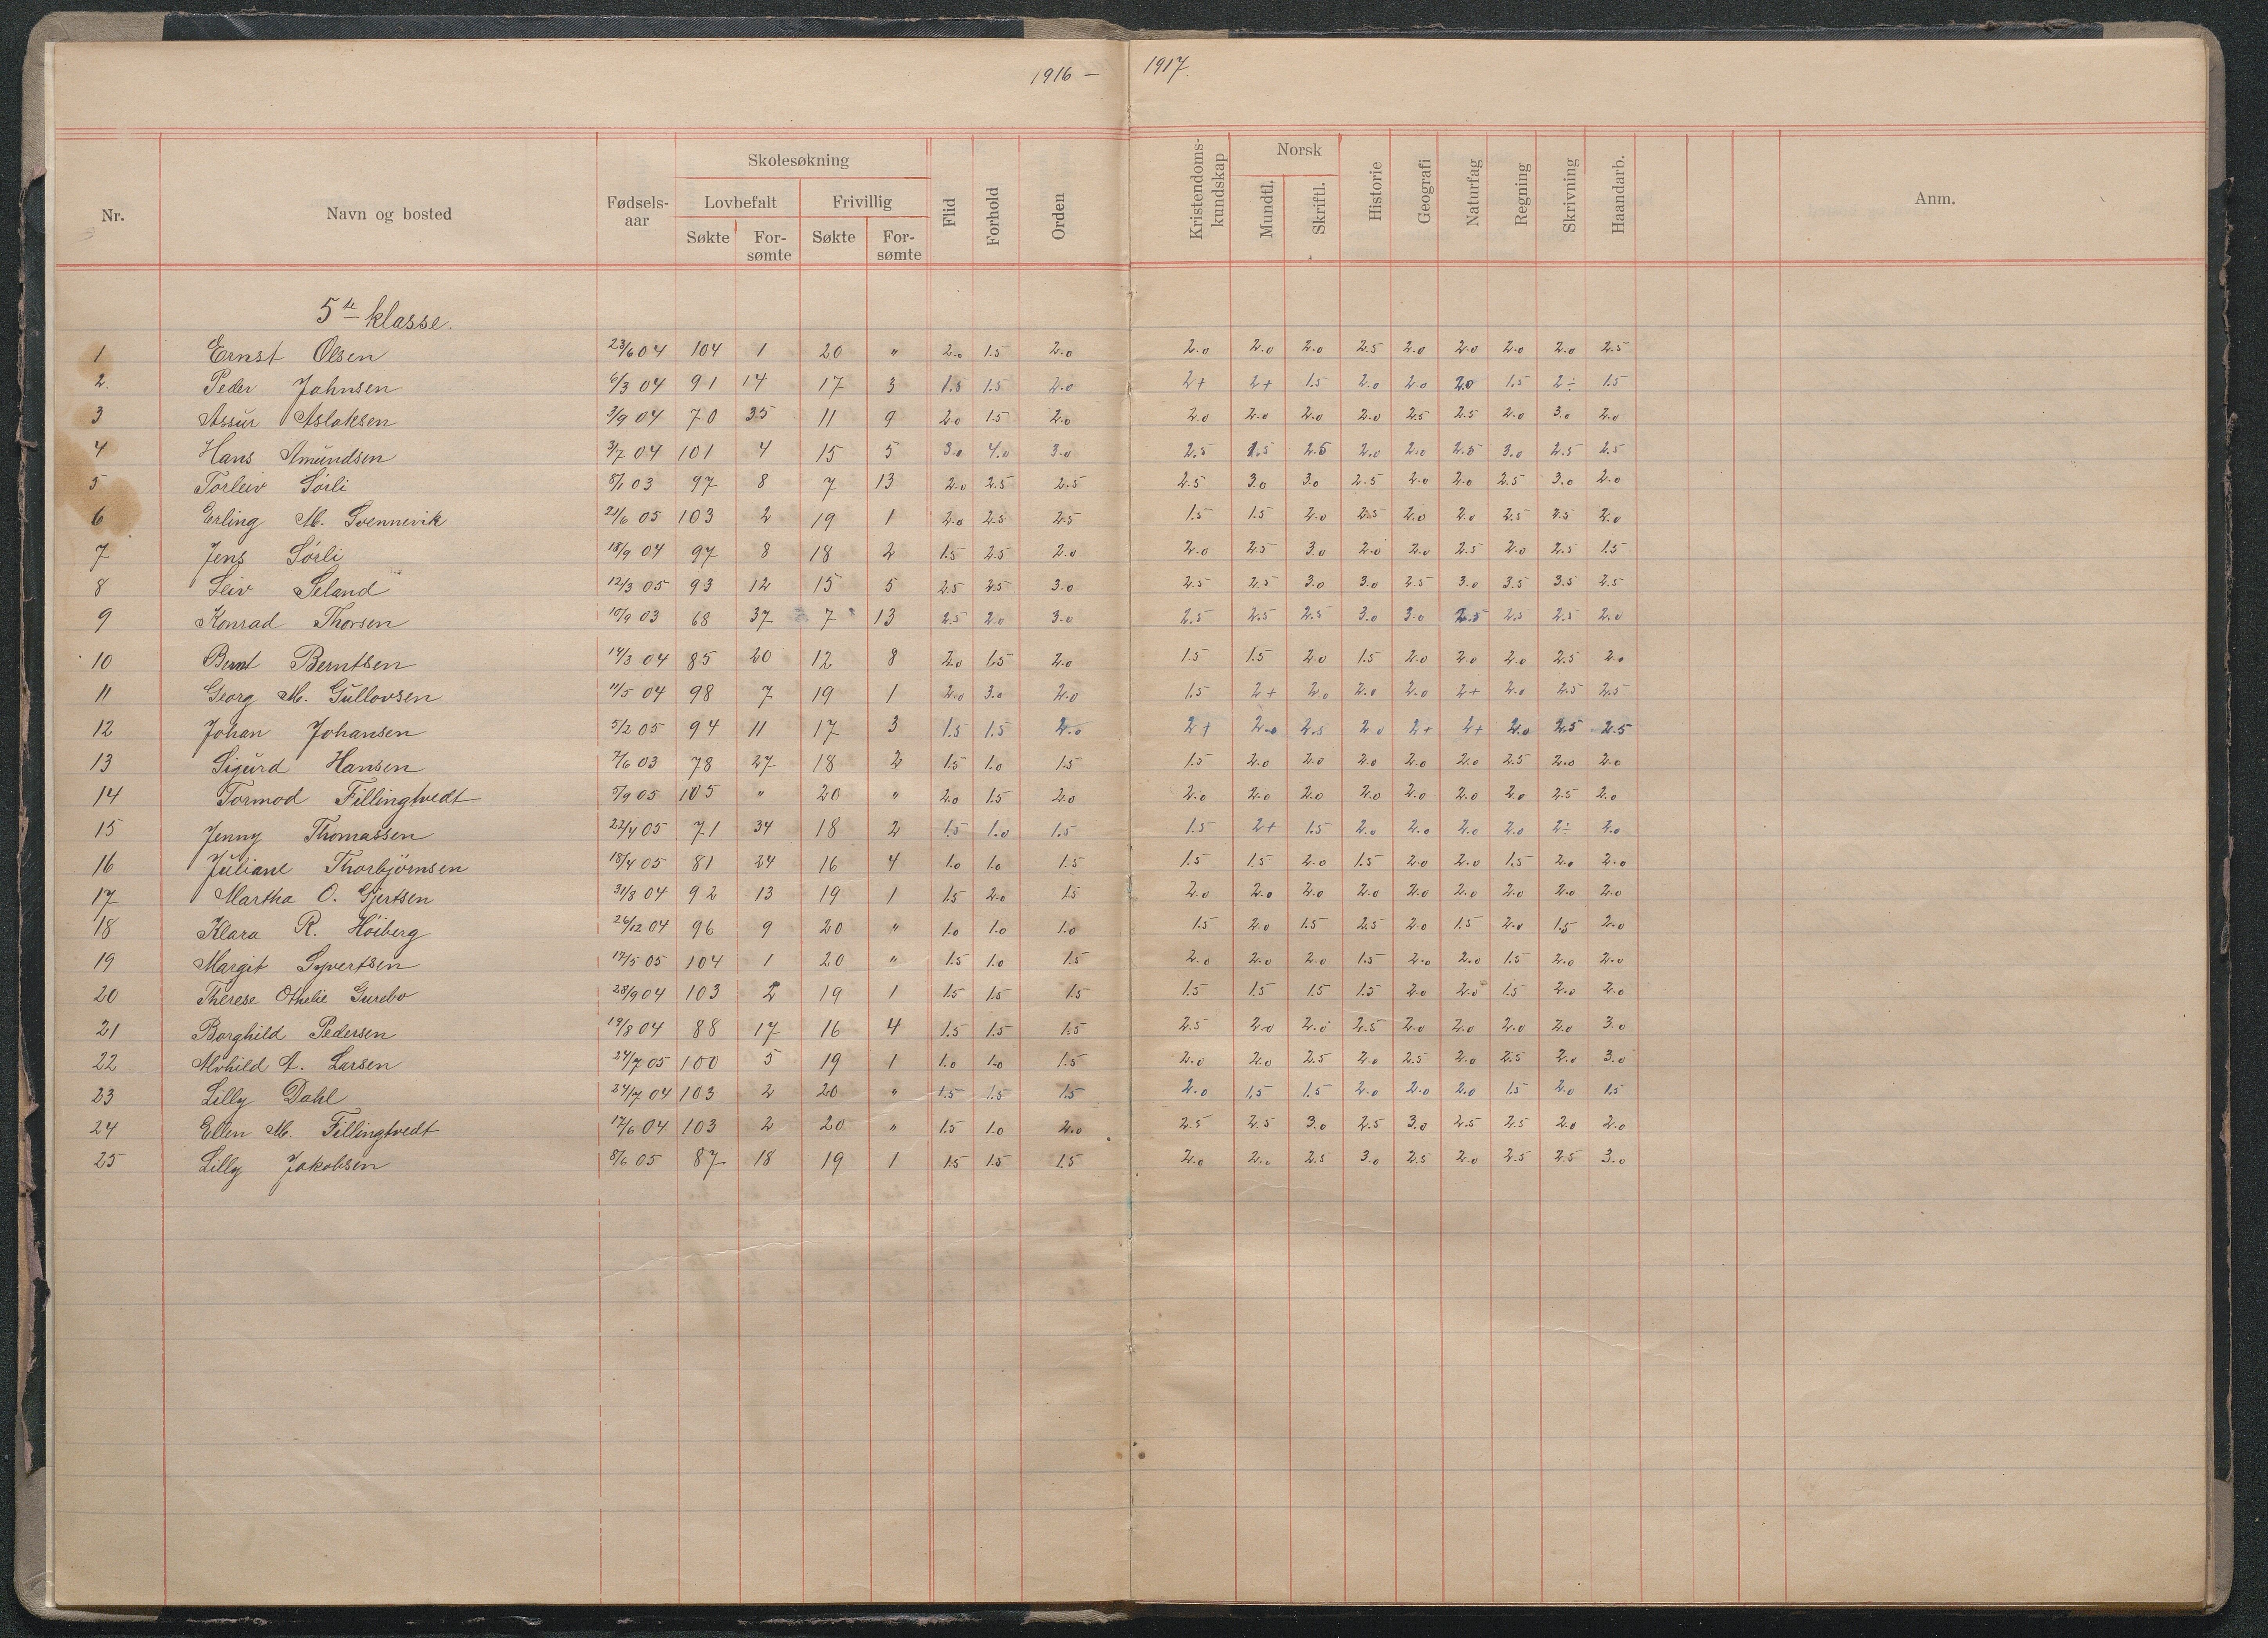 1916 – 1917.
Nr. Navn og bosted Fødsels-aar Skolesøkning Lovbefalt Søkte For-sømte Frivillig Søkte For-sømte Flid Forhold Orden Kristendoms-kundskap Norsk Mundtl. Skriftl. Historie Geografi Naturfag Regning Skrivning Haandarb. Anm.
5te klasse.
1 Ernst Olsen 23/6 04 104 1 20 " 2.0 1.5 2.0 2.0 2.0 2.0 2.5 2.0 2.0 2.0 2.0 2.5
2. Peder Jahnsen 6/3 04 91 14 17 3 1.5 1.5 2.0 2+ 2+ 1.5 2.0 2.0 2.0 1.5 2÷ 1.5
3 Assur Aslaksen 3/9 04 70 35 11 9 2.0 1.5 2.0 2.0 2.0 2.0 2.0 2.5 2.5 2.0 3.0 2.0
4 Hans Amundsen 3/7 04 101 4 15 5 3.0 4.0 3.0 2.5 2.5 2.5 2.0 2.0 2.5 3.0 2.5 2.5
5 Torleiv Sørli 8/1 03 97 8 7 13 2.0 2.5 2.5 2.5 3.0 3.0 2.5 2.0 2.0 2.5 3.0 2.0
6 Erling M. Svennevik 21/6 05 103 2 19 1 2.0 2.5 2.5 1.5 1.5 2.0 2.5 2.0 2.0 2.5 2.5 2.0
7 Jens Sørli 18/9 04 97 8 18 2 1.5 2.5 2.0 2.0 2.5 3.0 2.0 2.0 2.5 2.0 2.5 1.5
8 Leiv Seland 12/3 05 93 12 15 5 2.5 2.5 3.0 2.5 2.5 3.0 3.0 2.5 3.0 3.5 3.5 2.5
9 Konrad Thorsen 10/9 03 68 37 7 13 2.5 2.0 3.0 2.5 2.5 2.5 3.0 3.0 2.5 2.5 2.5 2.0
10 Bernt Berntsen 14/3 04 85 20 12 8 2.0 1.5 2.0 1.5 1.5 2.0 1.5 2.0 2.0 2.0 2.5 2.0
11 Georg M. Gullovsen 11/5 04 98 7 19 1 2.0 3.0 2.0 1.5 2+ 2.0 2.0 2.0 2+ 2.0 2.5 2.5
12 Johan Johansen 5/2 05 94 11 17 3 1.5 1.5 2.0 2+ 2.0 2.5 2.0 2+ 2+ 2.0 2.5 2.5
13 Sigurd Hansen 7/6 03 78 27 18 2 1.5 1.0 1.5 1.5 2.0 2.0 2.0 2.0 2.0 2.5 2.0 2.0
14 Tormod Fillingtvedt 5/9 05 105 " 20 " 2.0 1.5 2.0 2.0 2.0 2.0 2.0 2.0 2.0 2.0 2.5 2.0
15 Jenny Thomassen 22/4 05 71 34 18 2 1.5 1.0 1.5 1.5 2+ 1.5 2.0 2.0 2.0 2.0 2÷ 2.0
16 Juliane Thorbjörnsen 18/4 05 81 24 16 4 1.0 1.0 1.5 1.5 1.5 2.0 1.5 2.0 2.0 1.5 2.0 2.0
17 Martha O. Gjertsen 31/8 04 92 13 19 1 1.5 2.0 1.5 2.0 2.0 2.0 2.0 2.0 2.0 2.0 2.0 2.0
18 Klara R. Høiberg 26/12 04 96 9 20 " 1.0 1.0 1.0 1.5 2.0 1.5 2.5 2.0 1.5 2.0 1.5 2.0
19 Margit Syvertsen 17/5 05 104 1 20 " 1.5 1.0 1.5 2.0 2.0 2.0 1.5 2.0 2.0 1.5 2.0 2.0
20 Therese Othelie Gurebo 28/9 04 103 2 19 1 1.5 1.5 1.5 1.5 1.5 1.5 1.5 2.0 2.0 1.5 2.0 2.0
21 Borghild Pedersen 19/8 04 88 17 16 4 1.5 1.5 1.5 2.5 2.0 2.0 2.5 2.0 2.0 2.0 2.0 3.0
22 Alvhild A. Larsen 24/7 05 100 5 19 1 1.0 1.0 1.5 2.0 2.0 2.5 2.0 2.5 2.0 2.5 2.0 3.0
23 Lilly Dahl 24/7 04 103 2 20 " 1.5 1.5 1.5 2.0 1.5 1.5 2.0 2.0 2.0 1.5 2.0 1.5
24 Ellen M. Fillingtvedt 17/6 04 103 2 20 " 1.5 1.0 2.0 2.5 2.5 3.0 2.5 3.0 2.5 2.5 2.0 2.0
25 Lilly Jakobsen 8/6 05 87 18 19 1 1.5 1.5 1.5 2.0 2.0 2.5 3.0 2.5 2.0 2.5 2.5 3.0